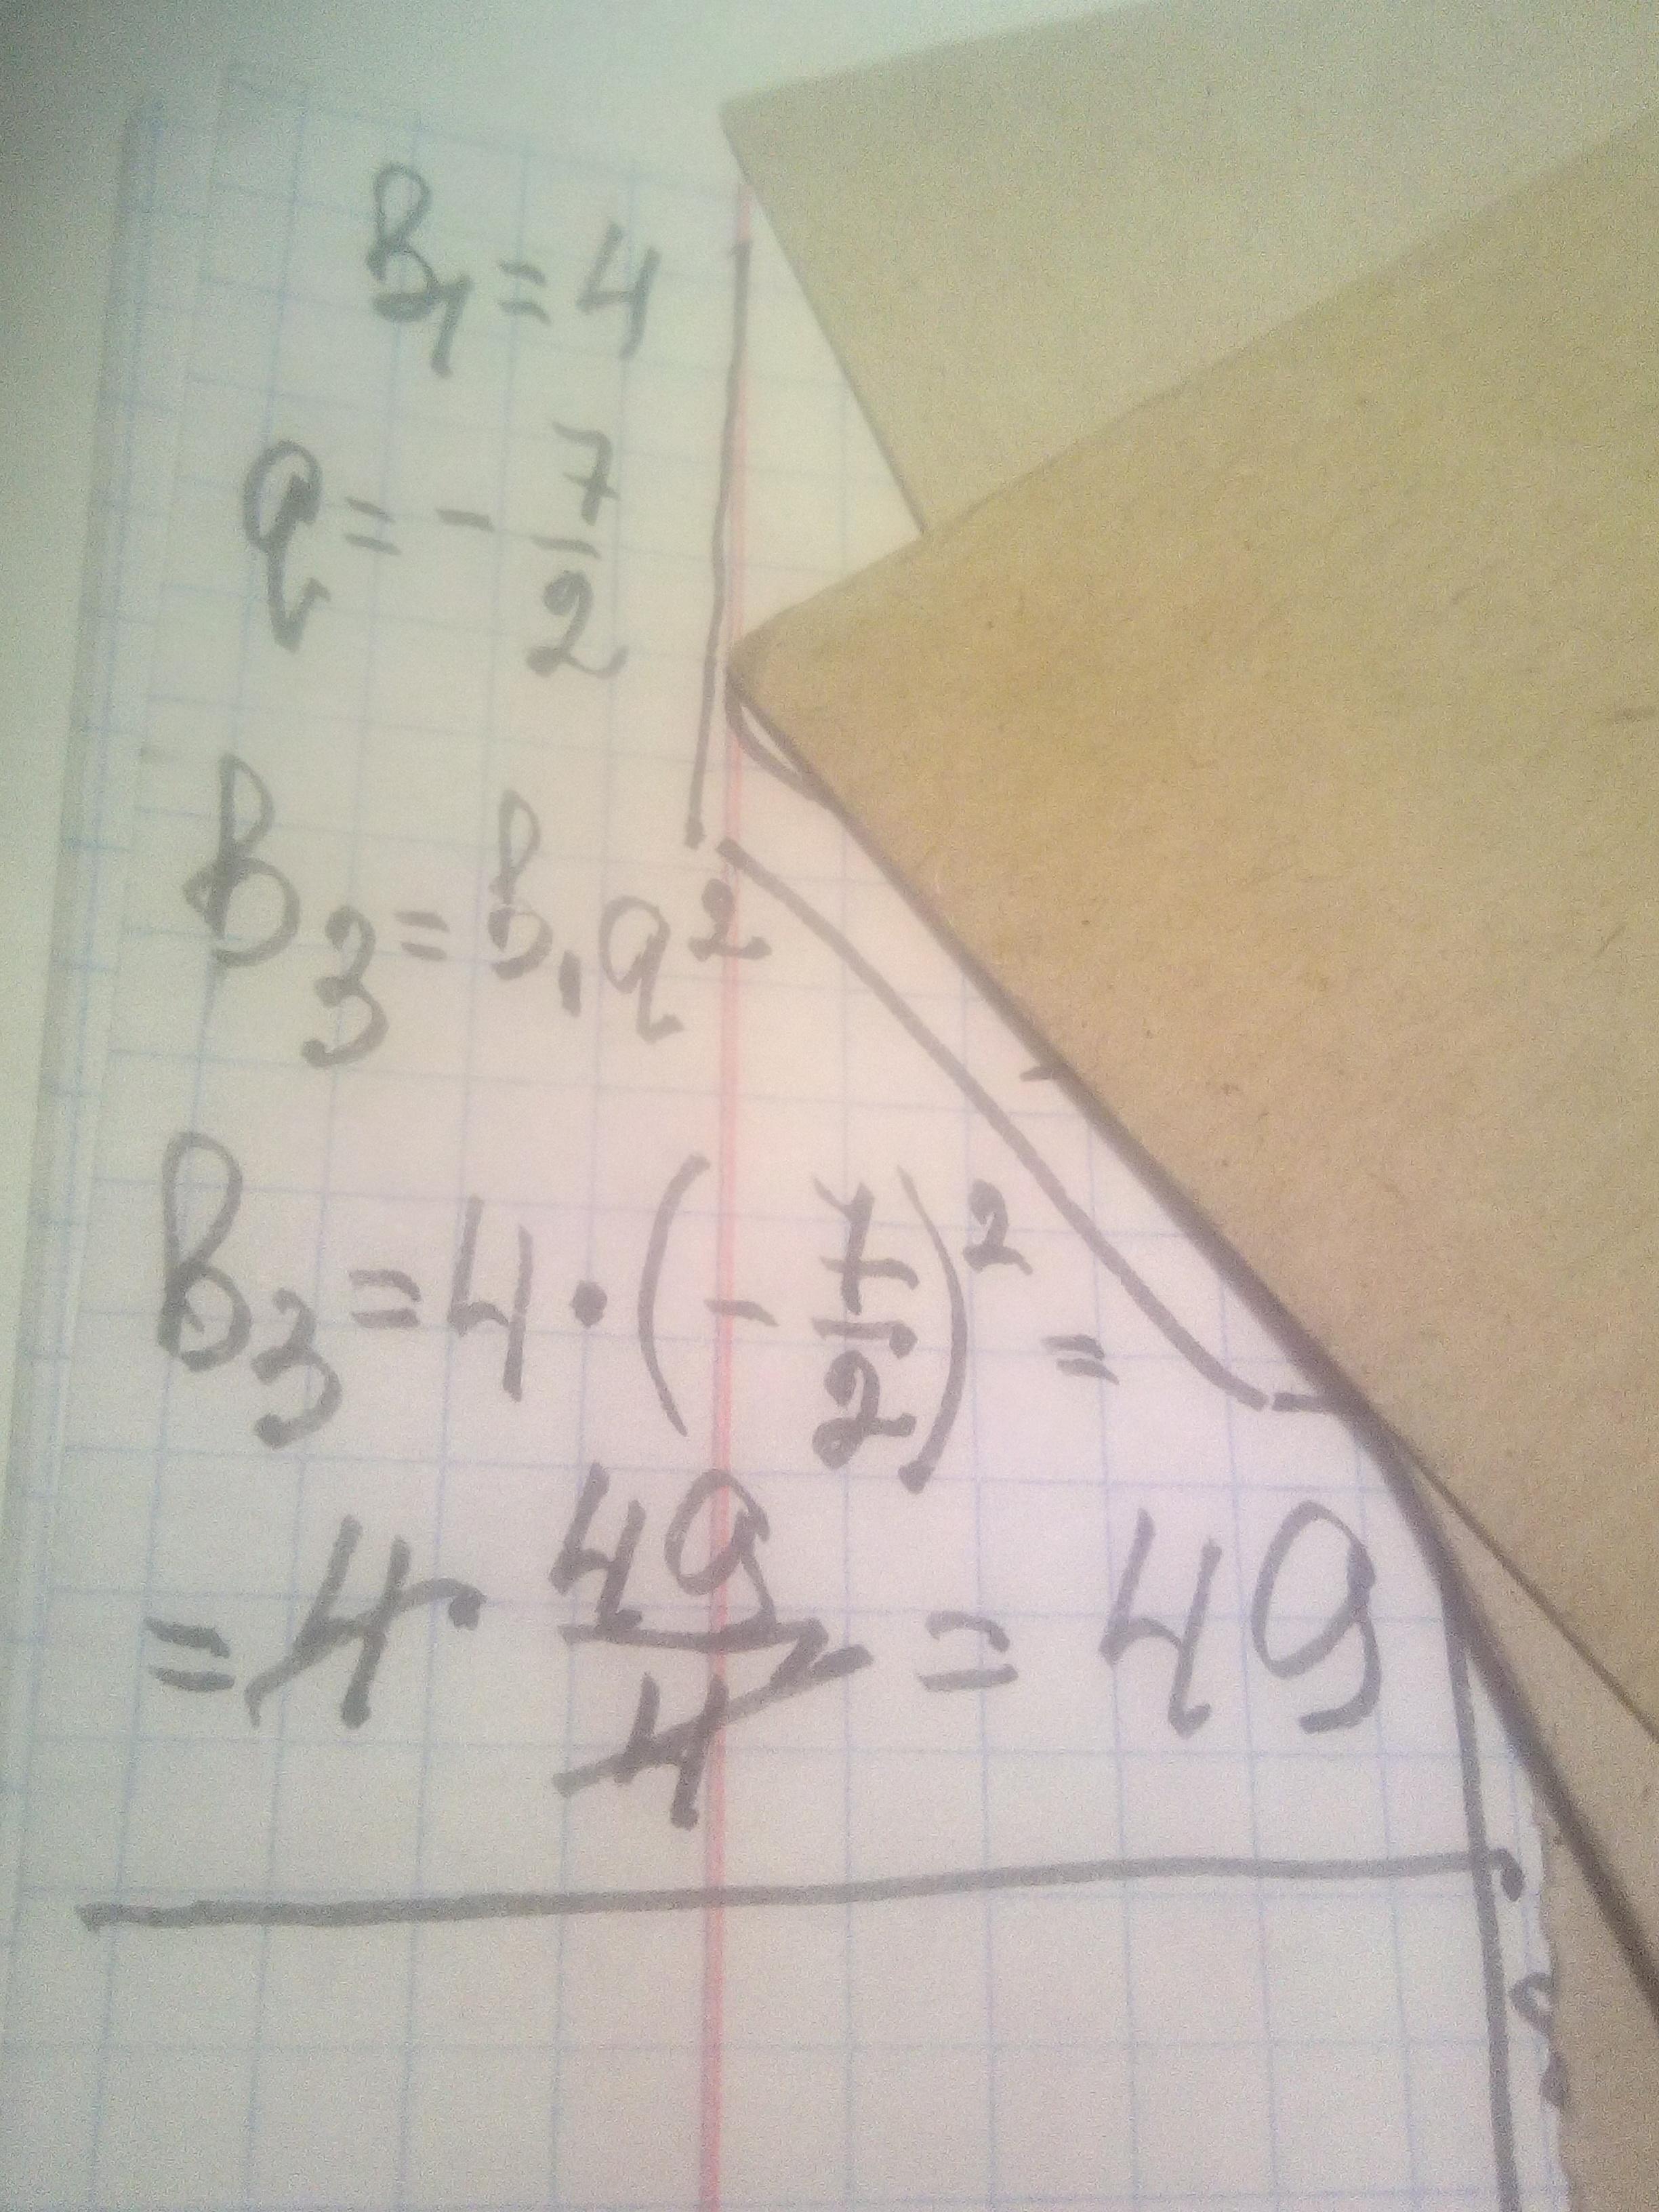 b₁ = 4
q = - 7/2
b₃ = b₁q²
b₃ = 4 · (- 7/2)² =
= 4 · 49/4 = 49